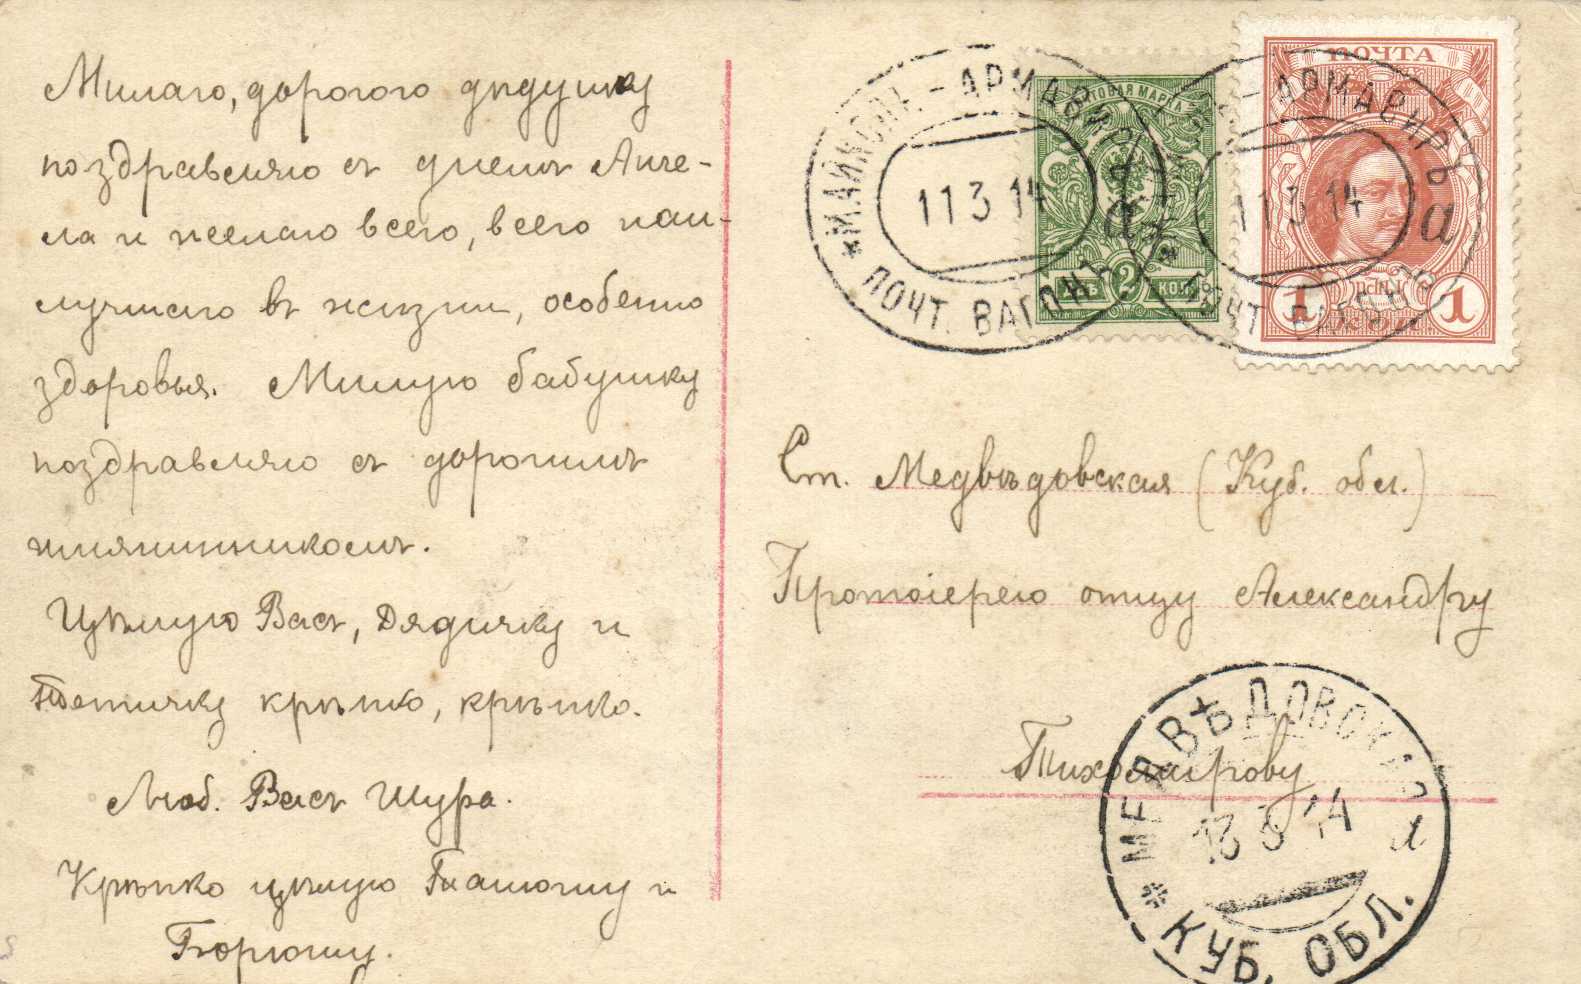 Милаго, дорогого дѣдушку
поздравляю съ днемъ Анге-
ла и желаю всего, всего наи-
лучшаго въ жизни, особенно
здоровья. Милую бабушку
поздравляю съ дорогимъ
имянинникомъ.
Цѣлую Васъ, Дядичку и
Тетичку крѣпко, крѣпко.
Люб. Васъ Шура.
Крѣпко цѣлую и
Борюшу.
МАЙКОПЪ-АРМАВИРЪ
11 3 14
а
ПОЧТ. ВАГОНЪ
ПОЧТОВАЯ МАРКА
2
КОП.
ПОЧТА
АРМАВИРЪ
11 3 14
а
ПОЧТ. ВАГОНЪ
1 1
КОП.
Ст. Медвѣдовская (Куб. обл.)
Протоіерею отцу Александру
Тихомирову
МЕДВѢДОВСКАЯ
13 3 14
КУБ. ОБЛ.